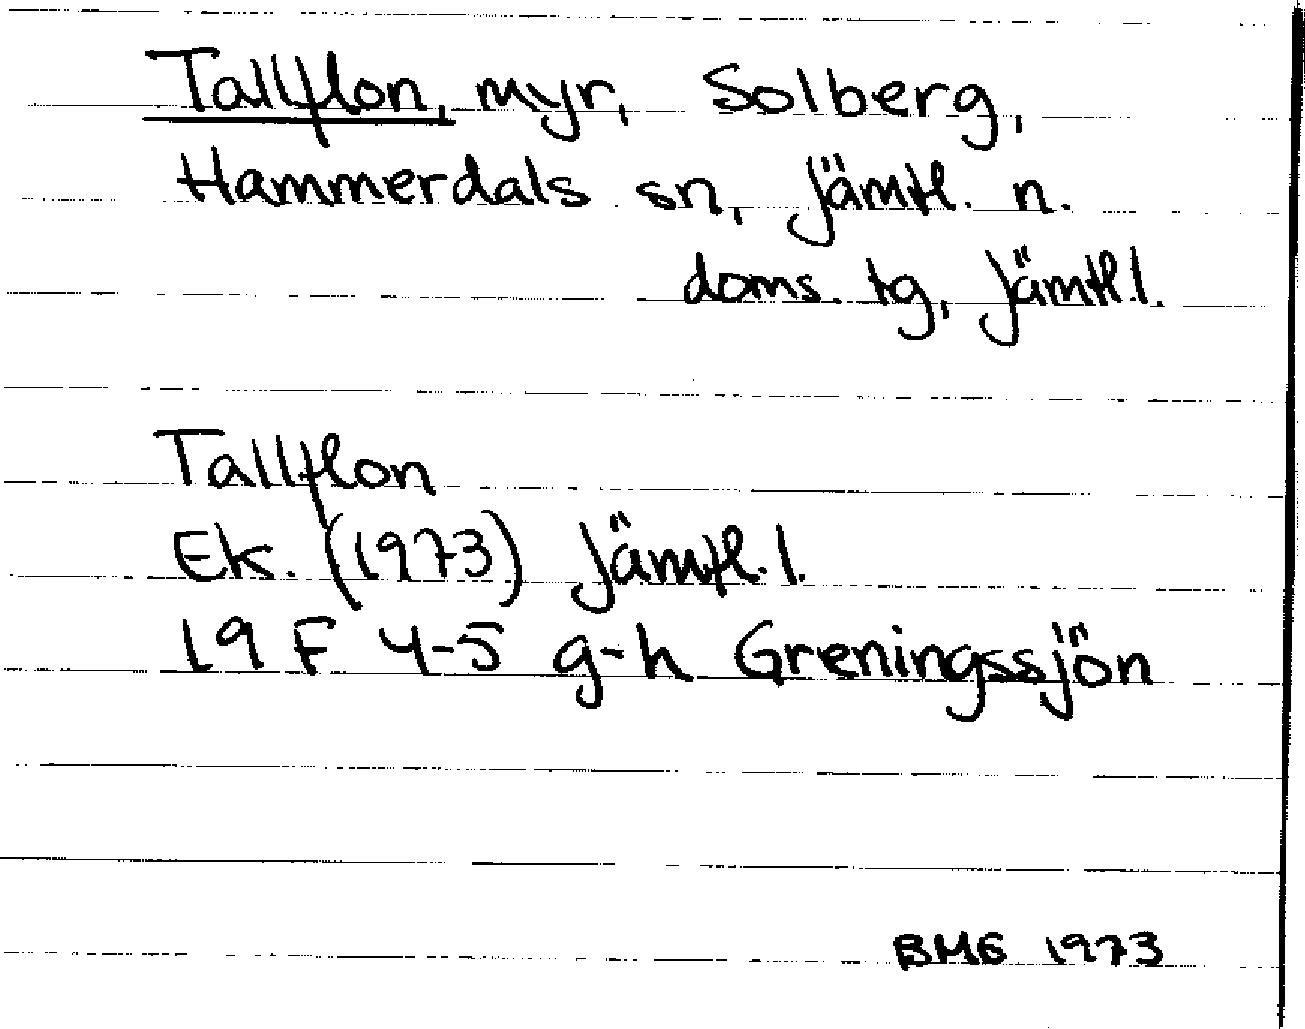 Tallflon, myr, Solberg,
Hammerdals sn, Jämtl. n.
doms. tg, Jämtl. l.
Tallflon
Ek. (1973) Jämtl. l.
19 F 4-5 g-h Greningssjön
BMG 1973